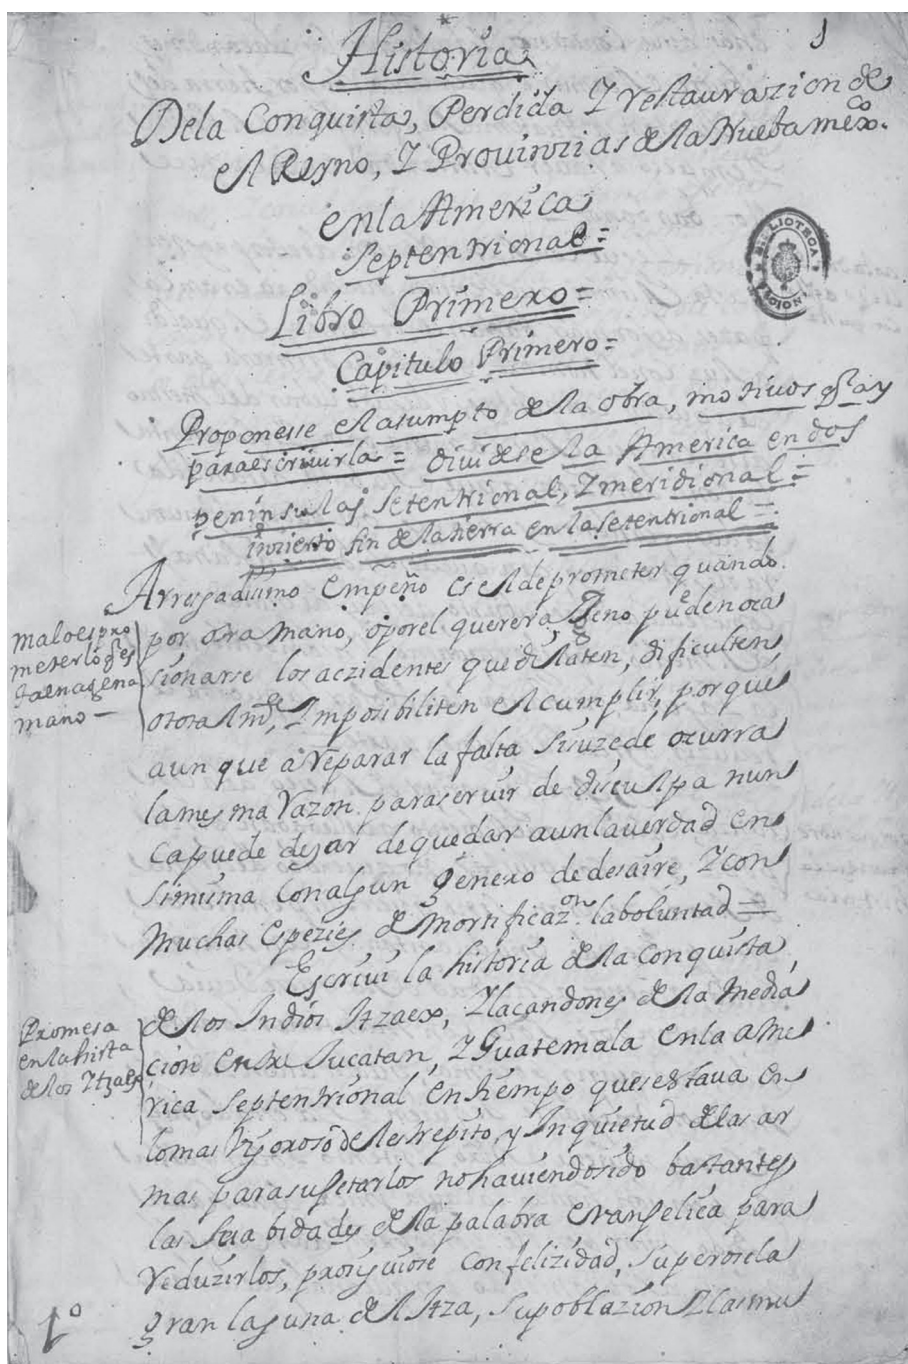 1
Historia
Dela Conquista, Perdida Y restaurazion de
el Reyno, Y Provinzias de la Nueba mexco.
en la America
septentrional=
Libro Primero=
Capitulo Primero=
Proponesse el asumpto de la obra, motivos q ay
para escrivirla= dividese la America en dos
peninsulas setentrional, Y meridional=
inzierto fin de la tierra en la setentrional=
Arriesgadissimo empeño es el de prometer quando
malo es pro
meter lo q es
de agena
mano—
por otra mano, o por el querer ageno pueden oca
sionarse los aczidentes que dilaten, dificulten
o totalmte, Imposibiliten el cumplir, porque
aun que a reparar la falta suzede ocurra
la mesma razon para servir de disculpa nun
ca puede dejar de quedar aun la verdad en
si misma con algun genero de desaire, Y con
muchas espezies de mortificazon la boluntad=
Escrivi la historia de la conquista
Promesa
en la hista
de los Ytzaex
de los Indios Itzaex, Y lacandones de la media
cion entre Yucatan, Y Guatemala en la Ame
rica septentrional en tiempo que estava en
lo mas rigoroso de el estrepito, y Inquietud de las ar
mas para sugetarlos no haviendo sido bastantes
las suabidades de la palabra evangelica para
reduzirlos, prosiguiose con felizidad, superose la
gran laguna de el Itza, su poblazion Y las mu
1o
BIBLIOTECA